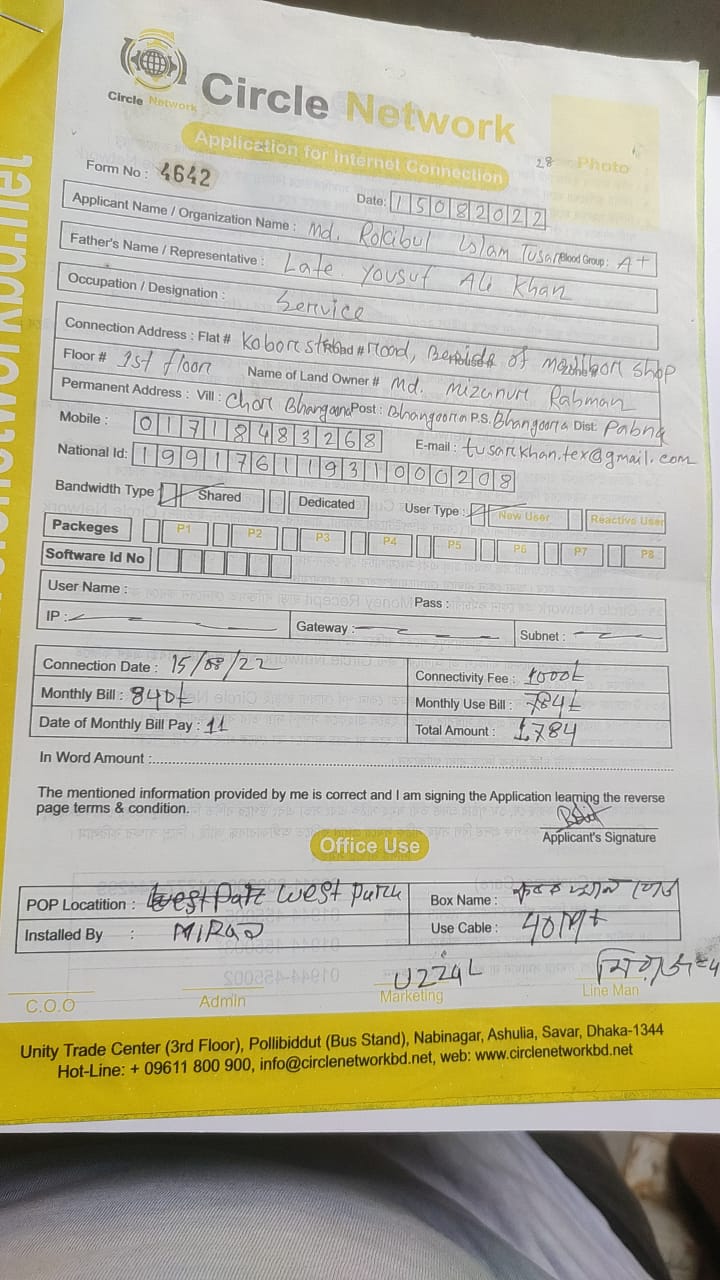 Circle Network
Circle Network
Application for Internet Connection
28
Photo
Form No : 4642
Date: 15082022
Applicant Name / Organization Name : Md. Rokibul Islam Tusar Blood Group : A+
Father's Name / Representative : Late. Yousuf Ali Khan
Occupation / Designation : Service
Connection Address : Flat # Road # Road, House # of shop
Floor # 1st floor Name of Land Owner # Md. Mizanur Rahman
Permanent Address : Vill : Chor Bhangoora Post : Bhangoora P.S. Bhangoora Dist: Pabna
Mobile : 01718483268 E-mail : tusarkhan.tex@gmail.com
National Id: 19917611931000208
Bandwidth Type Shared Dedicated User Type : New User Reactive User
Packeges P1 P2 P3 P4 P5 P6 P7 P8
Software Id No
User Name : Pass :
IP : Gateway : Subnet :
Connection Date : 15/08/22 Connectivity Fee : 1000t
Monthly Bill : 840t Monthly Use Bill : 784t
Date of Monthly Bill Pay : 11 Total Amount : 1,784
In Word Amount :
The mentioned information provided by me is correct and I am signing the Application learning the reverse
page terms & condition.
Applicant's Signature
Office Use
POP Locatition : West Para Box Name :
Installed By : MIRAJ Use Cable : 40Mt
C.O.O Admin Marketing Line Man
Unity Trade Center (3rd Floor), Pollibiddut (Bus Stand), Nabinagar, Ashulia, Savar, Dhaka-1344
Hot-Line: + 09611 800 900, info@circlenetworkbd.net, web: www.circlenetworkbd.net